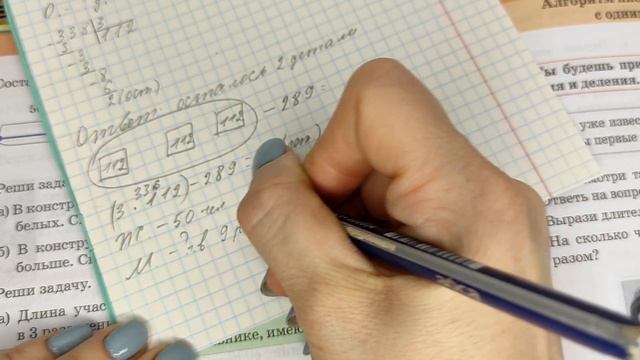 О. - ? g.
- 338 | 3
3 | 112
- 3
3
- 8
2 (ост)
Ответ: осталось 2 детали
112 112 112 - 289 =
336
(3 · 112) - 289 = (ост)
ПТ - 50 чел
М - ? в 9 р
Реши зада
а) В констр
белых. С
б) В констру
больше. Сі
Реши задачу.
а) Длина учас
в 3 раза
нике, имею
Алгоритм
с один
ы будешь при
ия и деления.
уже извес
ы первые
смотри та
ответь на вопр
Вырази длите
На сколько ч
разом?